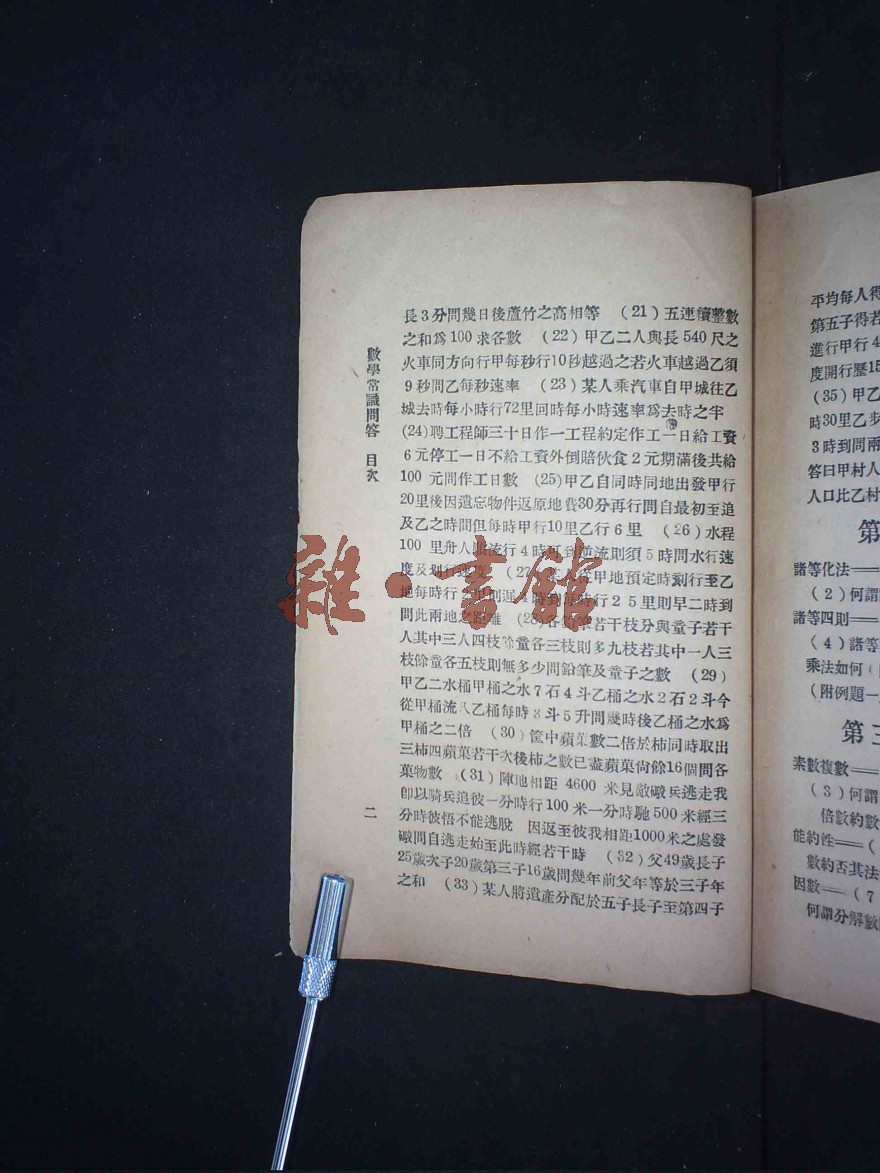 長3分問幾日後蘆竹之高相等 (21) 五連續整數
之和爲100求各數 (22) 甲乙二人與長540尺之
火車同方向行甲每秒行10秒越過之若火車越過乙須
9秒問乙每秒速率 (23) 某人乘汽車自甲城往乙
城去時每小時行72里回時每小時速率爲去時之半
(24)聘工程師三十日作一工程約定作工一日給工資
6元停工一日不給工資外倒賠伙食2元期滿後共給
100元問作工日數 (25)甲乙自同時同地出發甲行
20里後因遺忘物件返原地費30分再行問自最初至追
及乙之時間但每時甲行10里乙行6里 (26)水程
100里舟人順流行4時可到逆流則須5時問水行速
度及划行速度 (27)某人從甲地預定時刻行至乙
地每時行 里則遲 時到 時行25里則早二時到
問此兩地之距離 (28) 鉛筆若干枝分與童子若干
人其中三人四枝餘童各三枝則多九枝若其中一人三
枝餘童各五枝則無多少問鉛筆及童子之數 (29)
甲乙二水桶甲桶之水7石4斗乙桶之水2石2斗今
從甲桶流入乙桶每時3斗5升問幾時後乙桶之水爲
甲桶之二倍 (30) 筐中蘋菓數二倍於柿同時取出
三柿四蘋菓若干次後柿之數已盡蘋菓尙餘16個問各
菓物數 (31) 陣地相距4600米見敵礮兵逃走我
卽以騎兵追彼一分時行100米一分時馳500米經三
分時彼悟不能逃脫 因返至彼我相距1000米之處發
礮問自逃走始至此時經若干時 (32) 父49歲長子
25歲次子20歲第三子16歲問幾年前父年等於三子年
之和 (33)某人將遺產分配於五子長子至第四子
數學常識問答 目次
二
雜·書館
平均每人得
第五子得若
進行甲行4
度開行歷15
(35) 甲乙
時30里乙步
3時到問兩
答曰甲村人
人口比乙村
第
諸等化法——
(2) 何謂
諸等四則——
(4) 諸等
乘法如何(
(附例題一
第三
素數複數——
(3) 何謂
倍數約數
能約性——(
數約否其法
因數——(7
何謂分解數